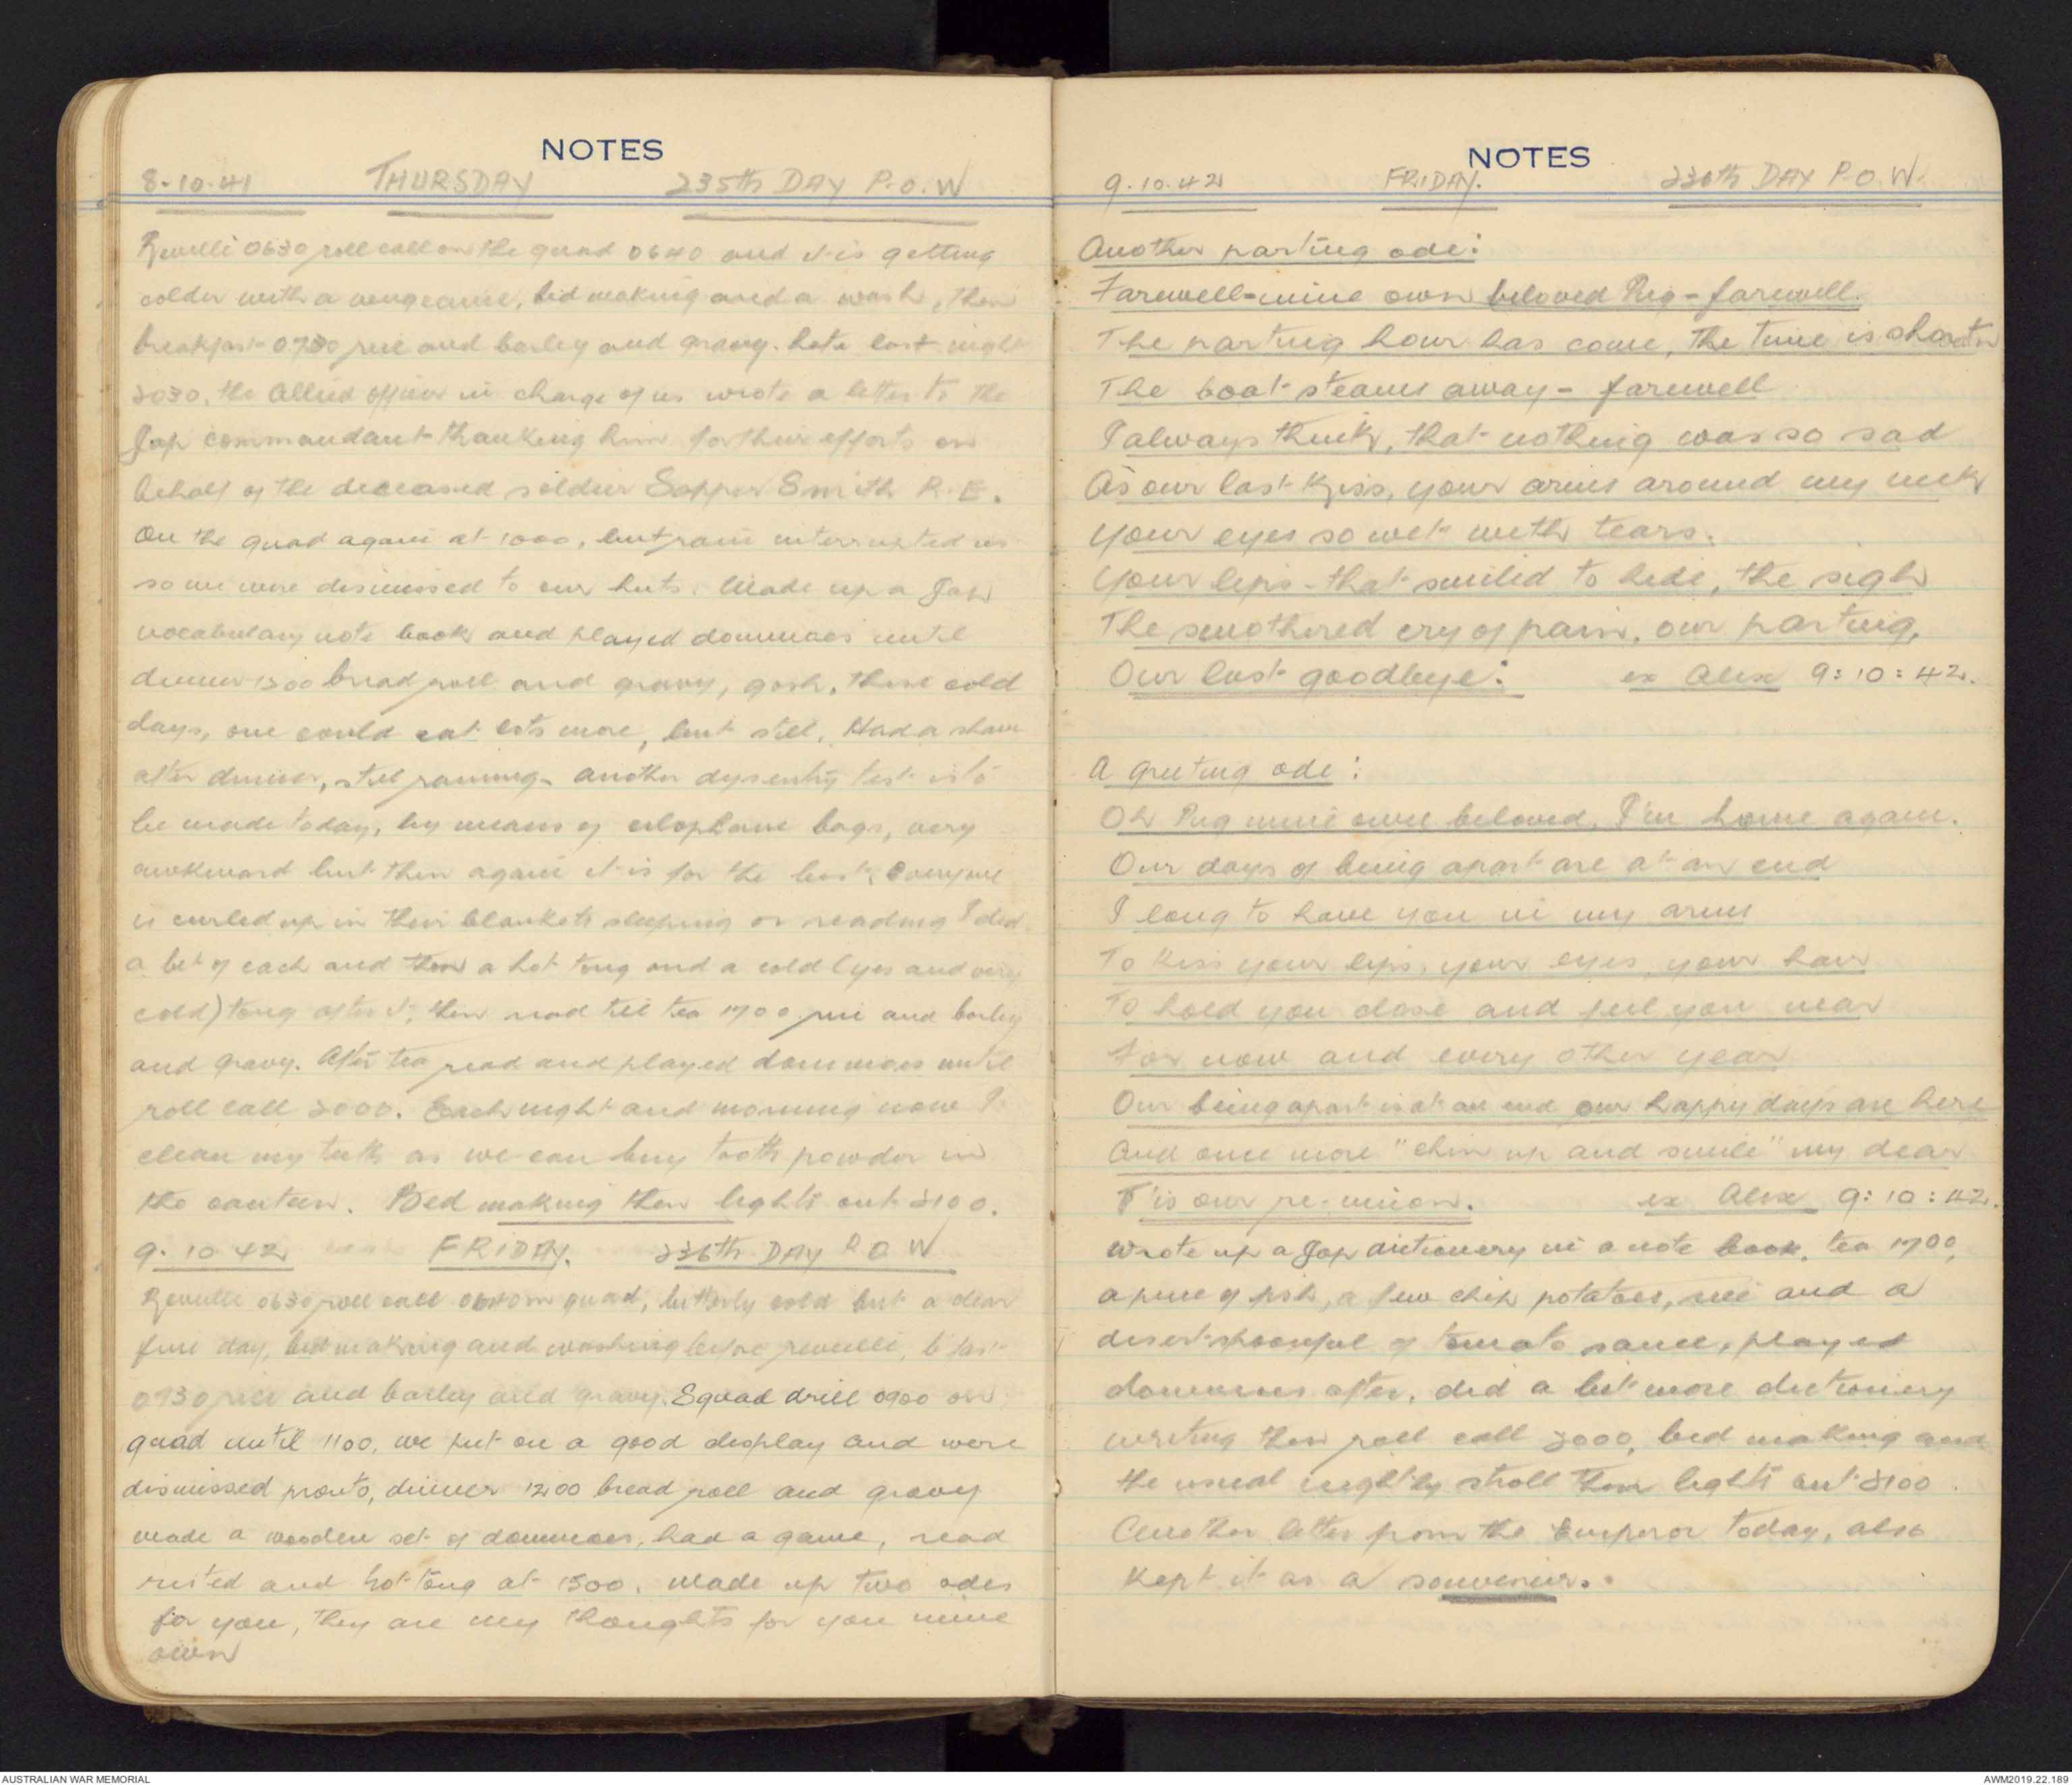 NOTES
8-10-41 THURSDAY 235th DAY P.O.W
Revelli 0630 roll call on the quad 0640 and it is getting
colder with a vengeance, bed making and a wash, then
breakfast 0730 rice and barley and gravy. Late last night
2030, the Allied officer in charge of us wrote a letter to the
Jap commandant thanking him for their efforts on
behalf of the deceased soldier Sapper Smith R.E.
On the quad again at 1000, but rain interrupted us
so we were dismissed to our huts. Made up a Jap
vocabulary note book and played dominoes until
dinner 1200 bread roll and gravy, gosh, these cold
days, one could eat lots more, but still. Had a shave
after dinner, still raining. another dysentry test is to
be made today, by means of celophane bags, very
awkward but then again it is for the best. Everyone
is curled up in their blankets sleeping or reading I did
a bit of each and then a hot tong and a cold (yes and very
cold) tong after it, then read till tea 1700 rice and barley
and gravy. After tea read and played dominoes until
roll call 2000. Each night and morning now I
clean my teeth as we can buy tooth powder in
the canteen. Bed making then lights out 2100.
9.10.42 FRIDAY. 236th DAY P O W
Revelli 0630 roll call 0640 on quad, bitterly cold but a clear
fine day, bed making and washing before revelli, b'fast
0730 rice and barley and gravy. Squad drill 0900 on
quad until 1100, we put on a good display and were
dismissed pronto, dinner 1200 bread roll and gravy
made a wooden set of dominoes, had a game, read
rested and hot tong at 1500. Made up two odes
for you, they are my thoughts for you mine
own
NOTES
9.10.42 FRIDAY. 236th DAY P.O.W.
Another parting ode:
Farewell-mine own beloved Peg - farewell.
The parting hour has come, the time is short
The boat steams away - farewell
I always think, that nothing was so sad
As our last kiss, your arms around my neck
Your eyes so wet with tears.
Your lips - that smiled to hide, the sigh
The smothered cry of pain, our parting,
Our last goodbye: ex Alex 9:10:42.
A greeting ode:
Oh Peg mine own beloved, I'm home again.
Our days of being apart are at an end
I long to have you in my arms
To kiss your lips, your eyes, your hair
To hold you close and feel you near
For now and every other year
Our being apart is at an end our happy days are here
And once more "chin up and smile" my dear
T'is our re-union. ex Alex 9:10:42.
Wrote up a Jap dictionery in a note book, tea 1700,
a piece of fish, a few chip potatoes, rice and a
desertspoonful of tomato sauce, played
dominoes after, did a bit more dictionery
writing then roll call 2000, bed making and
the usual nightly stroll then lights out 2100.
Another letter from the Emperor today, also
kept it as a souvenir.
AUSTRALIAN WAR MEMORIAL
AWM2019.22.189